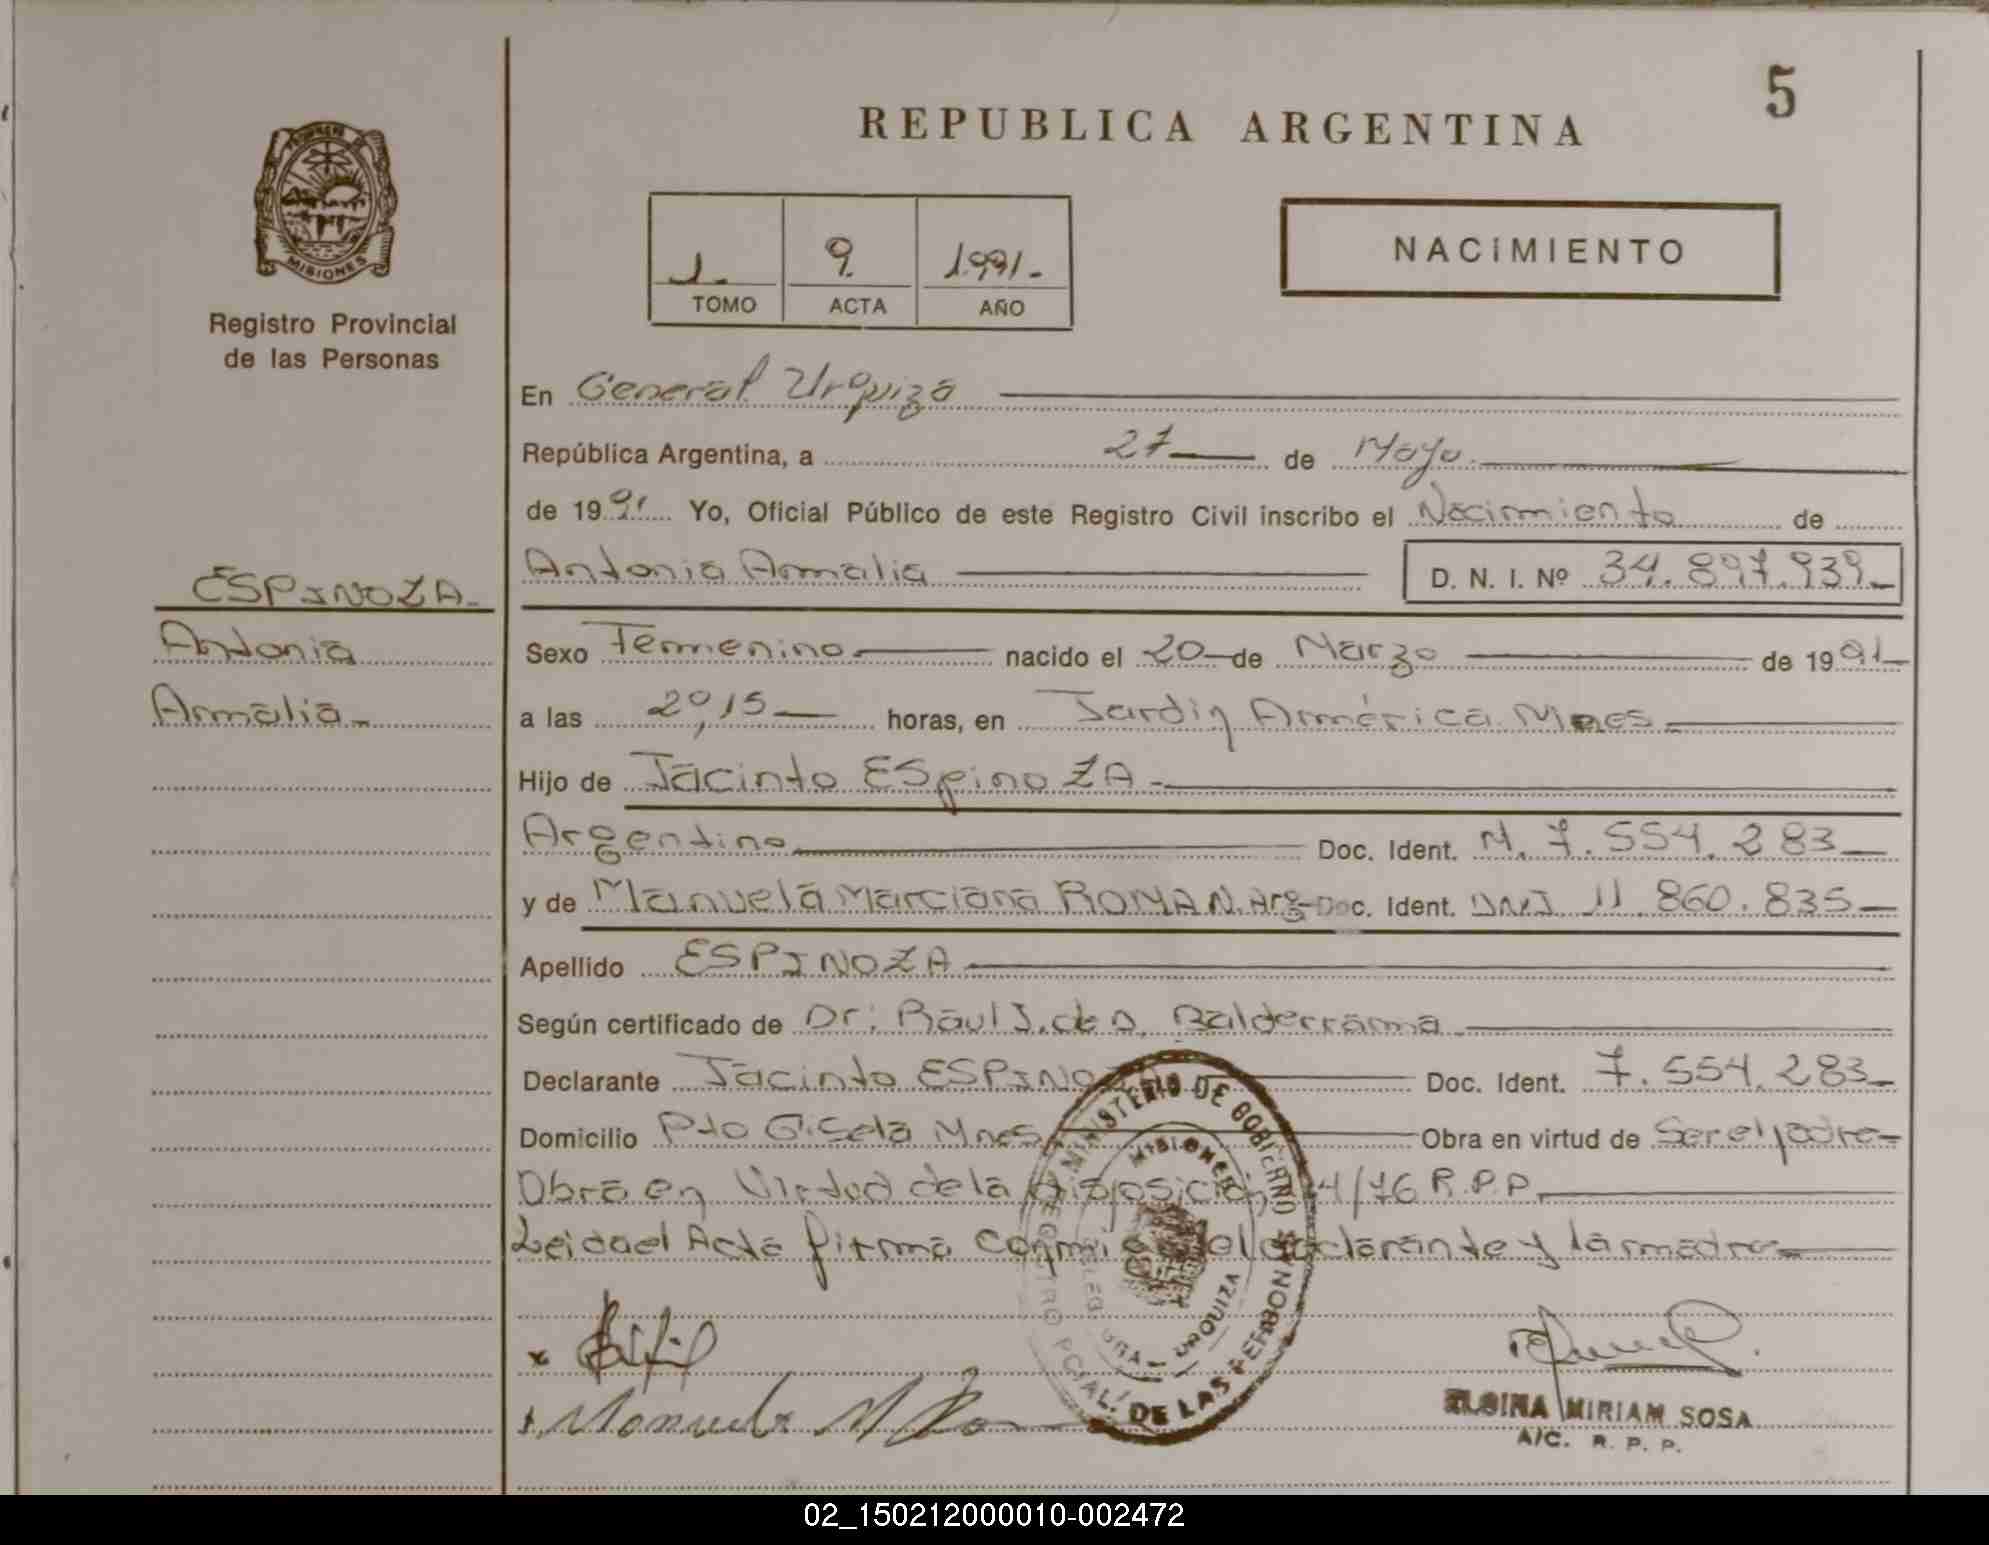 5
REPUBLICA ARGENTINA
MISIONES
Registro Provincial
de las Personas
1.- 9. 1.991.-
TOMO ACTA AÑO
NACIMIENTO
En General Urquiza
República Argentina, a 27 de Mayo.
de 1991 Yo, Oficial Público de este Registro Civil inscribo el Nacimiento de
Antonia Amalia D. N. I. Nº 34.897.939.-
ESPINOZA.-
Antonia
Amalia.-
Sexo Femenino nacido el 20 de Marzo de 1991
a las 20,15 horas, en Jardin América Mnes
Hijo de Jacinto ESpinoZA.-
Argentino Doc. Ident. M. 7.554.283
y de Manuela Marciana ROMAN. Arg- Doc. Ident. DNI 11.860.835
Apellido ESPINOZA
Según certificado de Dr: Raul J. de D. Balderrama
Declarante Jacinto ESPINOZA Doc. Ident. 7.554.283
Domicilio Pto Gisela Mnes Obra en virtud de Ser el padre
Obra en Virtud de la disposición 4/76 R.P.P.
Leida el Acta firma conmigo el declarante y la madre
MINISTERIO DE GOBIERNO
MISIONES
REGISTRO PCIAL. DE LAS PERSONAS
DELEG. GRAL URQUIZA
Manuela M
MIRIAM SOSA
A/C. R. P. P.
02_150212000010-002472